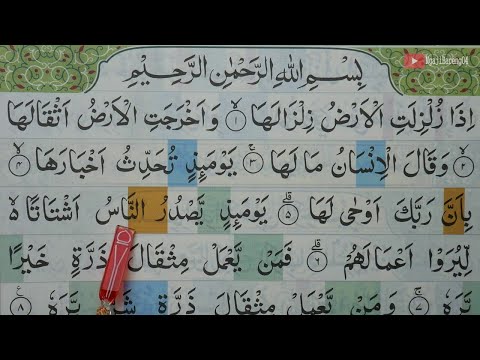 NgajiBareng04
بِسْمِ اللهِ الرَّحْمٰنِ الرَّحِيْمِ
اِذَا زُلْزِلَتِ الْاَرْضُ زِلْزَالَهَا ۙ ١ وَاَخْرَجَتِ الْاَرْضُ اَثْقَالَهَا
ۙ ٢ وَقَالَ الْاِنْسَانُ مَا لَهَا ۚ ٣ يَوْمَئِذٍ تُحَدِّثُ اَخْبَارَهَا ۙ ٤
بِاَنَّ رَبَّكَ اَوْحٰى لَهَا ۗ ٥ يَوْمَئِذٍ يَّصْدُرُ النَّاسُ اَشْتَاتًا ە
لِّيُرَوْا اَعْمَالَهُمْ ۗ ٦ فَمَنْ يَّعْمَلْ مِثْقَالَ ذَرَّةٍ خَيْرًا
يَّرَهٗ ۚ ٧ وَمَنْ يَّعْمَلْ مِثْقَالَ ذَرَّةٍ شَرًّا يَّرَهٗ ࣖ ٨